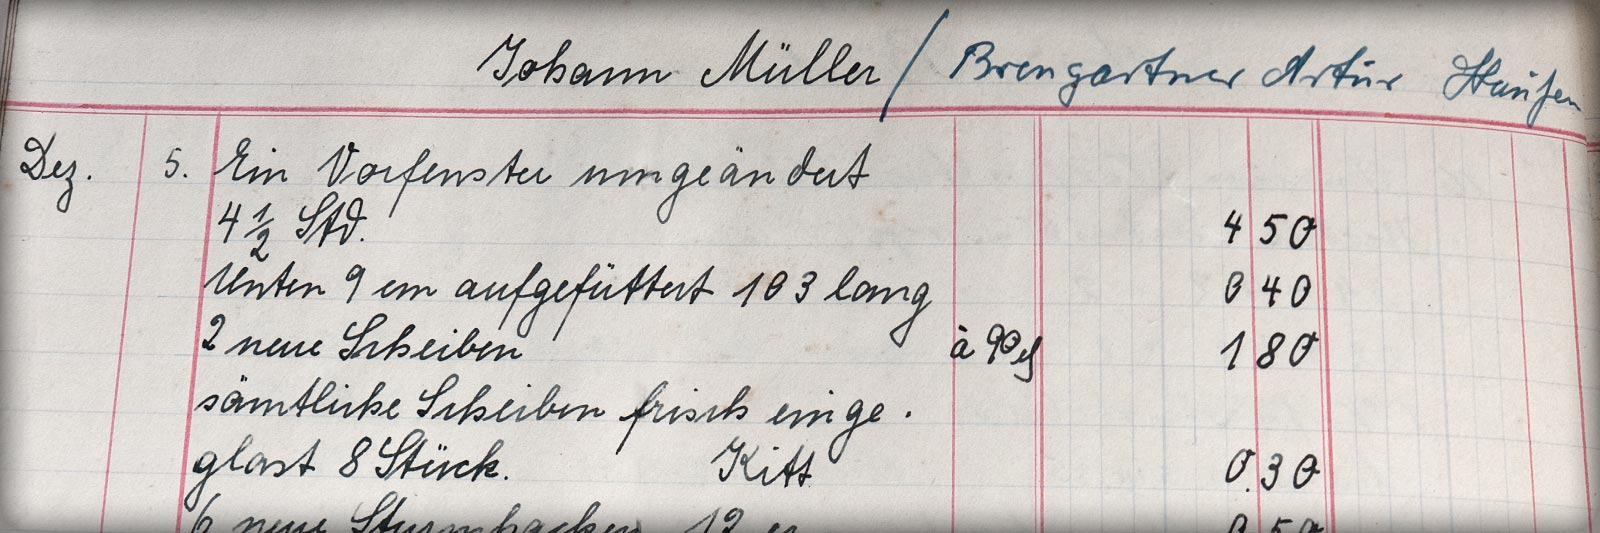 Johann Müller / Brengartner Artur Häusern
Dez. 5. Ein Vorfenster umgeändert
4 1/2 Std. 4 50
Unten 9 cm aufgefüttert 103 lang 0 40
2 neue Scheiben à 90 1 80
sämtliche Scheiben frisch einge.
glast 8 Stück. Kitt 0.30
6 neue Sturmhacken 12 0 50